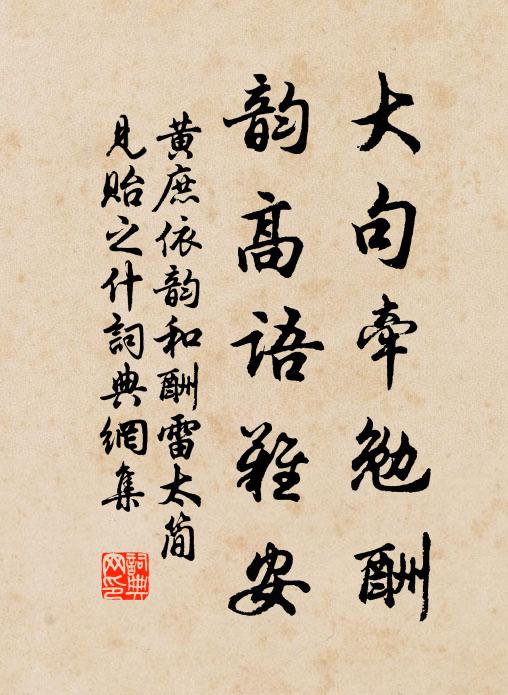 大句牵勉酬
韵高语难安
黄庶依韵和酬雷太简
见贻之什詞典網集
詞典网印